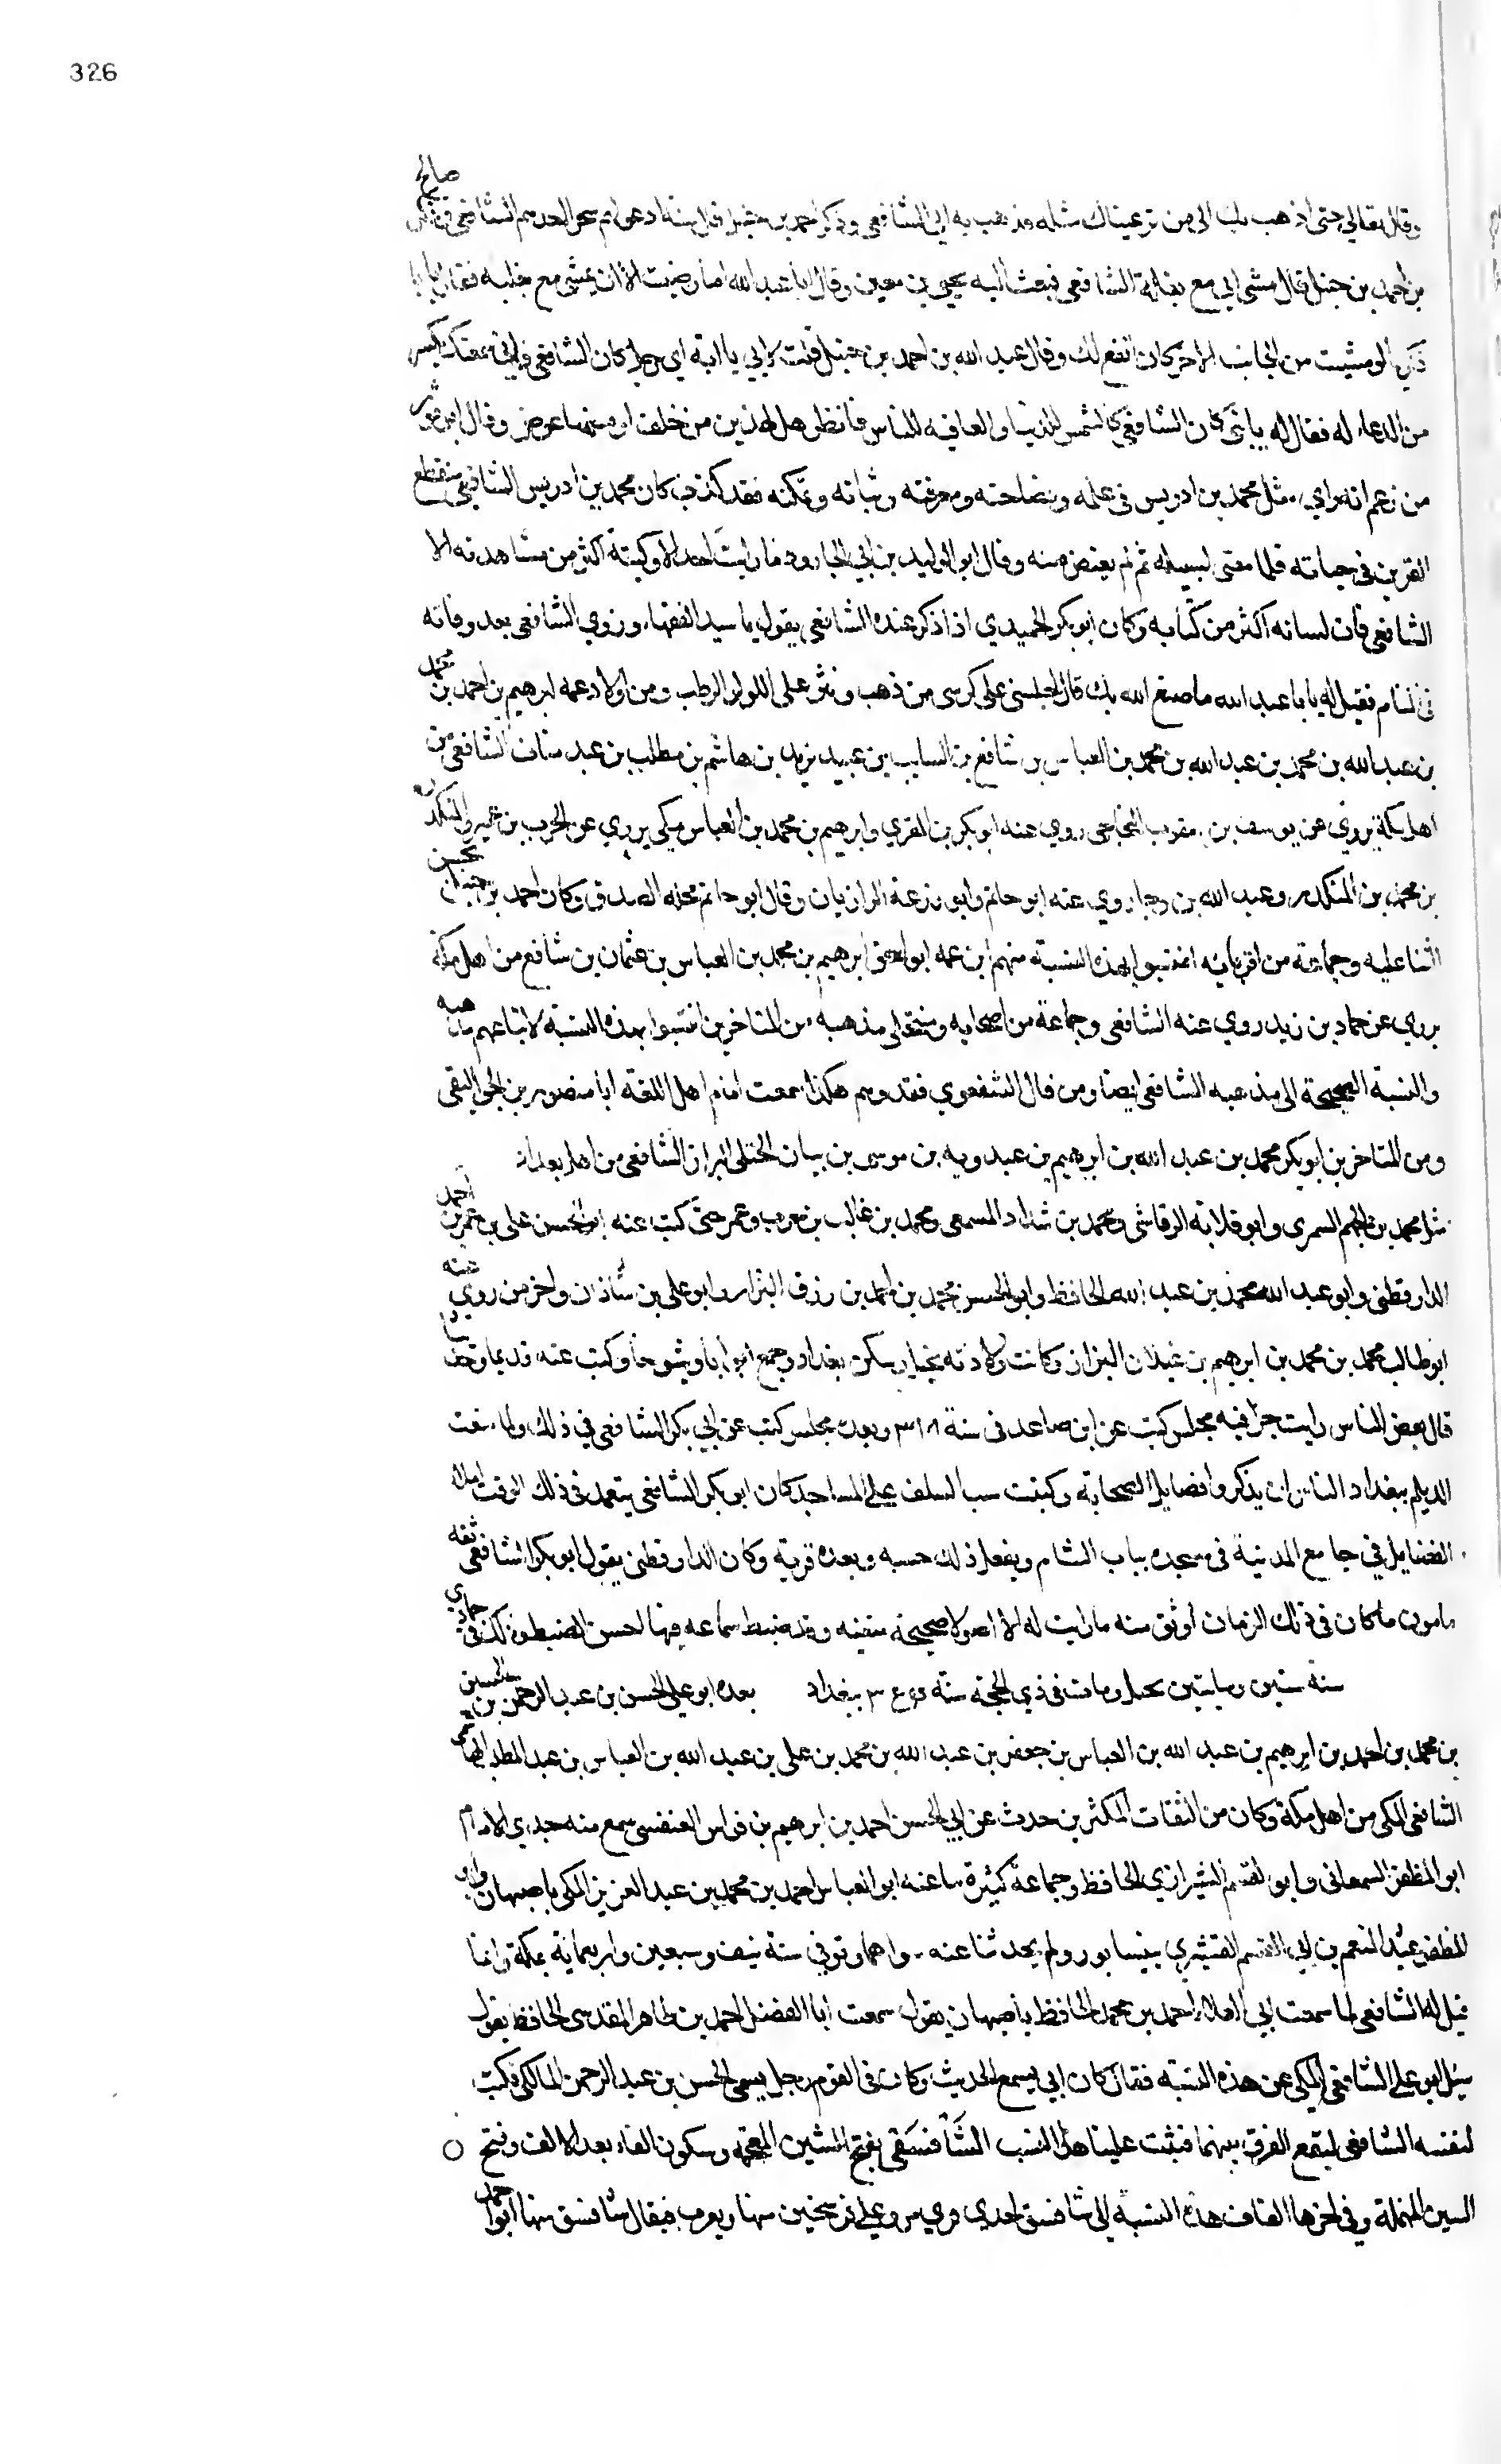 326
وقال تعالى حتى اذهب بك الى من تر عيناك مثله فذهب به الى الشافعي وذكر احمد بن حنبل صالح
بن احمد بن حنبل قال مشى ابي مع بغلة الشافعي فبعث اليه يحيى بن معين وقال ابا عبد الله اما رضيت الا ان يمشي مع بغلته فقال يا با
زكريا لو مشيت من الجانب الاخر كان انفع لك وقال عبد الله بن احمد بن حنبل قلت لابي يا ابة اي رجل كان الشافعي فاني سمعتك تكثر
من الدعاء له فقال له يا بني كان الشافعي كالشمس للدنيا والعافية للناس فانظر هل لهذين من خلف او منهما عوض وقال ابو ثور
من زعم انه راي مثل محمد بن ادريس في علمه وفصاحته ومعرفته وثباته وتمكنه فقد كذب كان محمد بن ادريس الشافعي منقطع
القرين في حياته فلما مضى لسبيله ثم لم يعتض منه وقال ابو الوليد بن ابي الجارود ما رايت احدا الا وكتبه اكثر من مشاهدته الا
الشافعي فان لسانه اكثر من كتابه وكان ابو بكر الحميدي اذا ذكر عنده الشافعي يقول يا سيد الفقهاء وروي الشافعي بعد وفاته
في المنام فقيل له يا با عبد الله ما صنع الله بك قال اجلسني على كرسي من ذهب ونثر علي اللولو الرطب ومن اولاد عمه ابرهيم بن احمد بن محمد
بن عبد الله بن محمد بن عبد الله بن محمد بن العباس بن شافع بن السايب بن عبيد يزيد بن هاشم بن مطلب بن عبد مناف الشافعي من
اهل مكة يروي عن يوسف بن يعقوب النجاحي روي عنه ابو بكر بن المقري وابرهيم بن محمد بن العباس مكي يروي عن الحرب بن عمير والمنكدر
بن محمد بن المنكدر وعبد الله بن رجا روي عنه ابو حاتم وابو زرعة الرازيان وقال ابو حاتم محله الصدق وكان احمد بن حنبل يحسن
الثنا عليه وجماعة من اقربائه انتسبوا بهذه النسبة منهم ابن عمه ابو اسحق ابرهيم بن محمد بن العباس بن عثمان بن شافع من اهل مكة
يروي عن حماد بن زيد روي عنه الشافعي وجماعة من اصحابه ومنتحلي مذهبه من المتاخرين انتسبوا بهذه النسبة لاتباعهم مذهبه
والنسبة الصحيحة الى مذهبه الشافعي ايضا ومن قال الشفعوي فقد وهم هكذا سمعت امام اهل اللغة ابا منصور بن الجواليقي
ومن المتاخرين ابو بكر محمد بن عبد الله بن ابرهيم بن عبدويه بن موسى بن بيان الختلي البزاز الشافعي من اهل بغداد
مثل محمد بن الجهم السمري وابو قلابة الرقاشي ومحمد بن شداد المسمعي ومحمد بن غالب بن حرب وعمر حتى كتب عنه ابو الحسن علي بن عمر بن احمد
الدارقطني وابو عبد الله محمد بن عبد الله الحافظ وابو الحسن محمد بن احمد بن رزق البزاز وابو علي بن شاذان واخر من روي عنه
ابو طالب محمد بن محمد بن ابرهيم بن غيلان البزاز وكانت ولادته بجبل وسكن بغداد وجمع ابوابا وشيوخا وكتب عنه قديما وحديثا
قال بعض الناس رايت جزا فيه مجلس كتب عن ابن صاعد في سنة ٣١٨ وبعده مجلس كتب عن ابي بكر الشافعي في ذلك ولما منعت
الديلم ببغداد الناس ان يذكروا فضايل الصحابة وكتبت سب السلف على المساجد كان ابو بكر الشافعي يتعمد في ذلك الوقت املاء
الفضايل في جامع المدينة في مسجده بباب الشام ويفعل ذلك حسبه ويعده قربة وكان الدارقطني يقول ابو بكر الشافعي ثقه
مامون ما كان في ذلك الزمان اوثق منه ما رايت له الا اصولا صحيحة متقنه وقد ضبط سماعه فيها احسن الضبط وذلك في جمادي
سنة ستين ومايتين بجبل ومات في ذي الحجة سنة ببغداد بعده ابو علي الحسن بن عبد الرحمن بن الحسين
بن محمد بن احمد بن ابرهيم بن عبد الله بن العباس بن جعفر بن عبد الله بن محمد بن علي بن عبد الله بن العباس بن عبد المطلب
الشافعي المكي من اهل مكة وكان من الثقات المكثرين حدث عن ابي الحسن احمد بن ابرهيم بن فراس العبقسي سمع منه جدي الامام
ابو المظفر السمعاني وابو القسم الشيرازي الحافظ وجماعة كثيرة عنه ابو العباس احمد بن محمد بن عبد العزيز المكي باصبهان وابو
المظفر عبد المنعم بن ابي القسم القشيري بنيسابور ولم يحدثنا عنه سواهما وتوفي سنة نيف وسبعين واربعماية بمكة وانما
قيل له الشافعي لما سمعت ابي العلاء احمد بن محمد الحافظ باصبهان يقول سمعت ابا الفضل احمد بن طاهر المقدسي الحافظ يقول
سئل ابو علي الشافعي المكي عن هذه النسبة فقال كان ابي يسمع الحديث وكان في القوم رجل يسمى الحسن بن عبد الرحمن المالكي فكتب
لنفسه الشافعي ليقع الفرق بينهما فثبت علينا هذا النسب الشافسقي بفتح الشين المعجمة وسكون الفاء بعد الالف وفتح ○
السين المهملة وفي اخرها القاف هذه النسبة الى شافسق احدي قري مرو علي فرسخين منها ويعرب فيقال شافسق منها ابو احمد